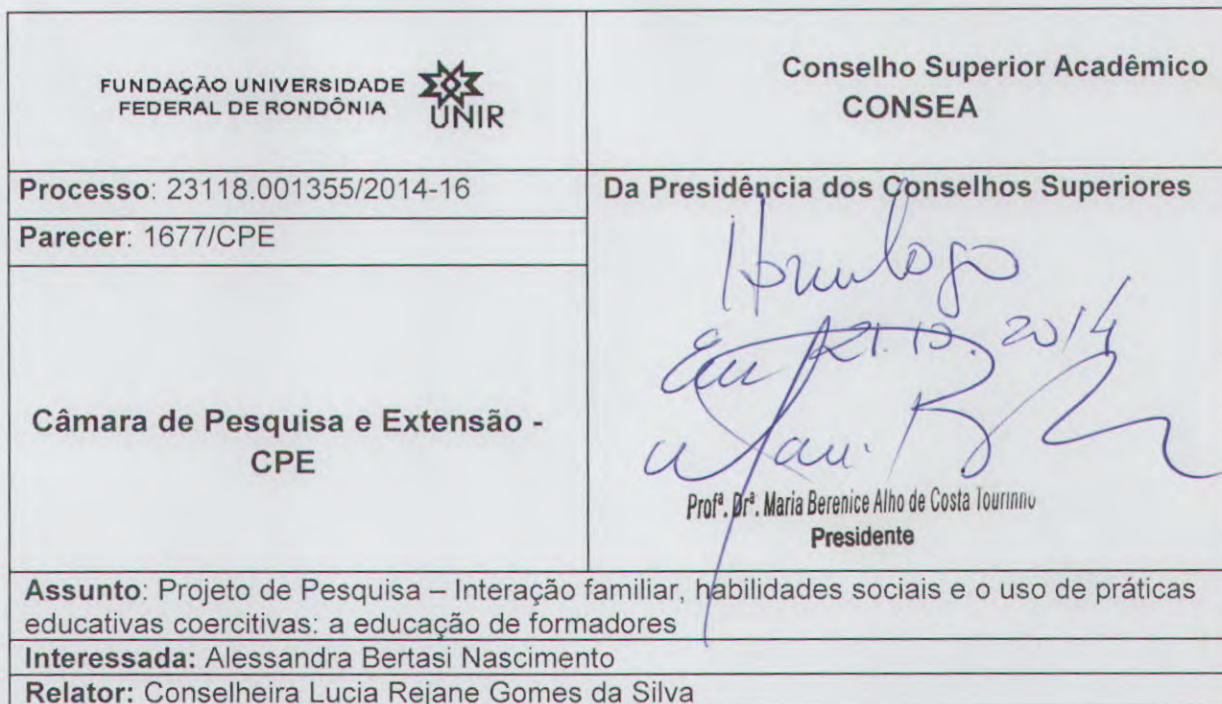 FUNDAÇÃO UNIVERSIDADE
FEDERAL DE RONDÔNIA
UNIR
Conselho Superior Acadêmico
CONSEA
Processo: 23118.001355/2014-16
Parecer: 1677/CPE
Câmara de Pesquisa e Extensão -
CPE
Da Presidência dos Conselhos Superiores
Homologo
Em 21.10.2014
Profª. Drª. Maria Berenice Alho de Costa Tourinho
Presidente
Assunto: Projeto de Pesquisa – Interação familiar, habilidades sociais e o uso de práticas
educativas coercitivas: a educação de formadores
Interessada: Alessandra Bertasi Nascimento
Relator: Conselheira Lucia Rejane Gomes da Silva